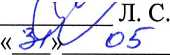 Л. С.
«31» 05